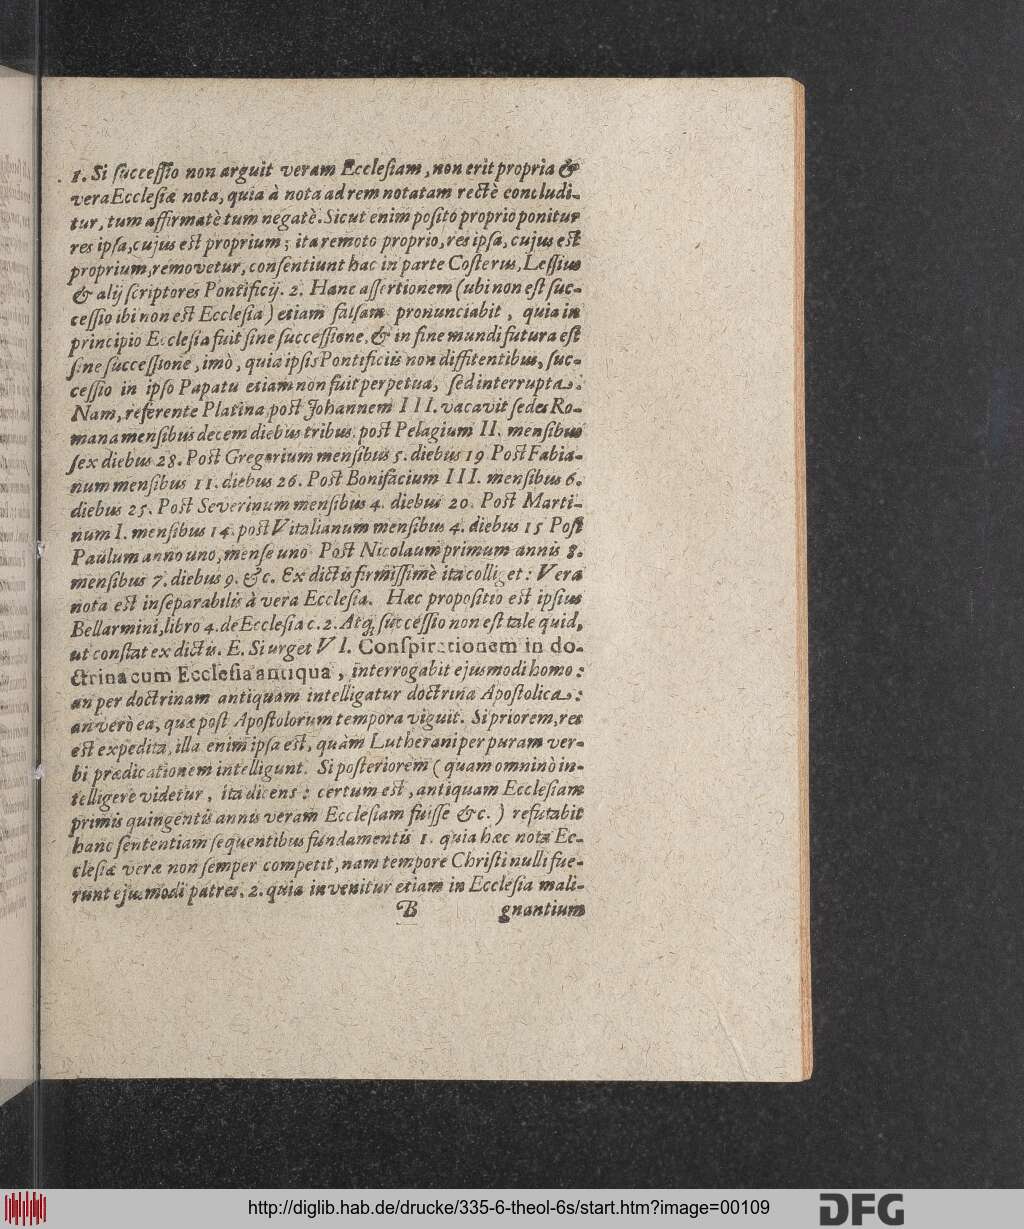 1. Si successio non arguit veram Ecclesiam, non erit propria &
vera Ecclesiæ nota, quia à nota ad rem notatam rectè concludi-
tur, tum affirmatè tum negatè. Sicut enim posito proprio ponitur
res ipsa, cujus est proprium; ita remoto proprio, res ipsa, cujus est
proprium, removetur, consentiunt hac in parte Costerus, Lessius
& alij scriptores Pontificij. 2. Hanc assertionem (ubi non est suc-
cessio ibi non est Ecclesia) etiam falsam pronunciabit, quia in
principio Ecclesia fuit sine successione, & in fine mundi futura est
sine successione, imò, quia ipsis Pontificiis non diffitentibus, suc-
cessio in ipso Papatu etiam non fuit perpetua, sed interrupta.
Nam, referente Platina post Johannem III. vacavit sedes Ro-
mana mensibus decem diebus tribus. post Pelagium II. mensibus
sex diebus 28. Post Gregorium mensibus 5. diebus 19 Post Fabia-
num mensibus 11. diebus 26. Post Bonifacium III. mensibus 6.
diebus 25. Post Severinum mensibus 4. diebus 20. Post Marti-
num I. mensibus 14. post Vitalianum mensibus 4. diebus 15 Post
Paulum anno uno, mense uno Post Nicolaum primum annis 8.
mensibus 7. diebus 9. &c. Ex dictis firmissimè ita colliget: Vera
nota est inseparabilis à vera Ecclesia. Hæc propositio est ipsius
Bellarmini, libro 4. de Ecclesia c. 2. Atq; successio non est tale quid,
ut constat ex dictis. E. Si urget VI. Conspirationem in do-
ctrina cum Ecclesia antiqua, interrogabit ejusmodi homo:
an per doctrinam antiquam intelligatur doctrina Apostolica:
an verò ea, quæ post Apostolorum tempora viguit. Si priorem, res
est expedita, illa enim ipsa est, quàm Lutherani per puram ver-
bi prædicationem intelligunt. Si posteriorem (quam omninò in-
telligere videtur, ita dicens: certum est, antiquam Ecclesiam
primis quingentis annis veram Ecclesiam fuisse &c.) refutabit
hanc sententiam sequentibus fundamentis 1. quia hæc nota Ec-
clesiæ veræ non semper competit, nam tempore Christi nulli fue-
runt ejusmodi patres. 2. quia invenitur etiam in Ecclesia mali-
B gnantium
http://diglib.hab.de/drucke/335-6-theol-6s/start.htm?image=00109
DFG